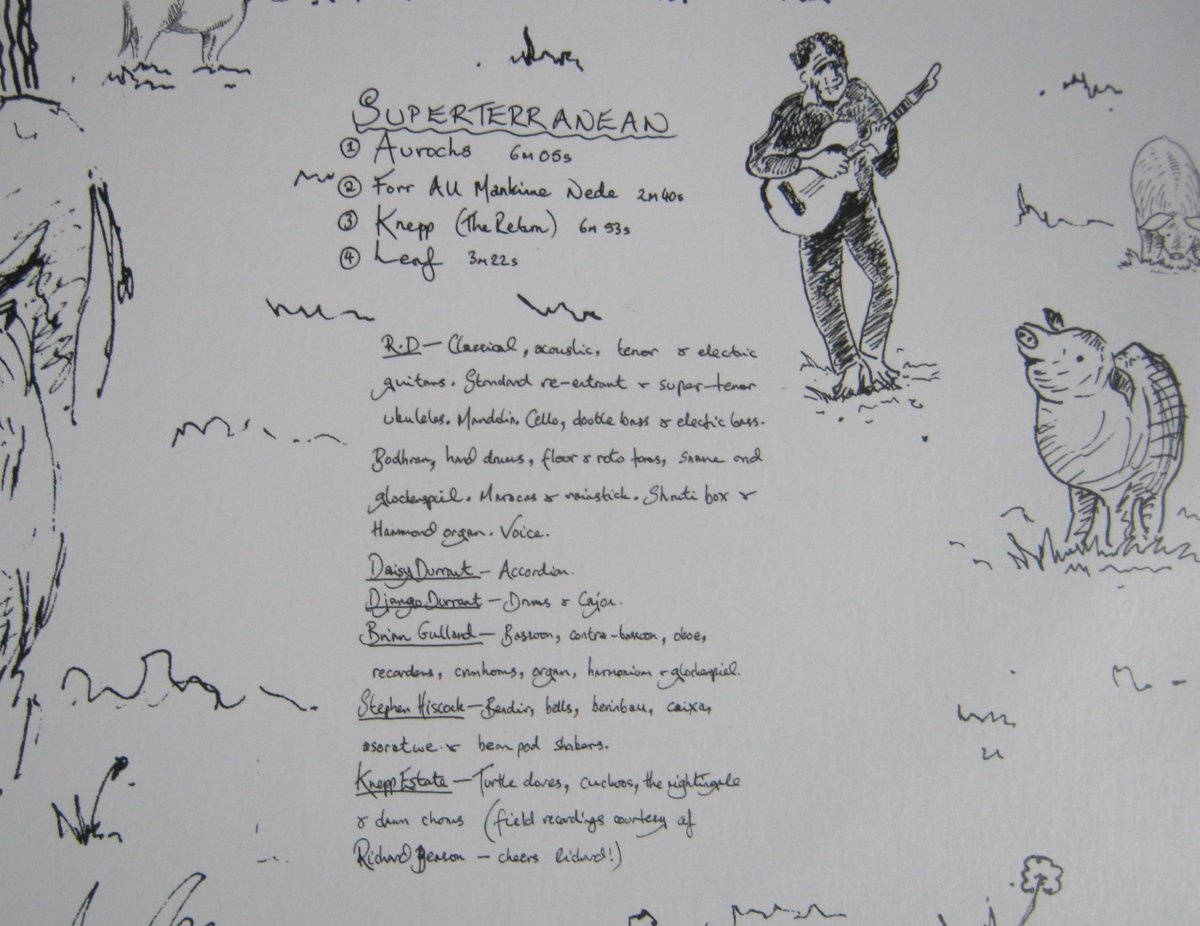 SUPERTERRANEAN
① Aurochs 6m05s
② Forr All Mankinne Nede 2m40s
③ Knepp (The Return) 6m53s
④ Leaf 3m22s
R.D — Classical, acoustic, tenor & electric
guitars. Standard re-entrant & super-tenor
ukuleles. Mandolin. Cello, double bass & electric bass.
Bodhran, hand drums, floor & roto toms, snare and
glockenspiel. Maracas & rainstick. Shruti box &
Hammond organ. Voice.
Daisy Durrant — Accordion.
Django Durrant — Drums & Cajon.
Brian Gulland — Bassoon, contra-bassoon, oboe,
recorders, crumhorns, organ, harmonium & glockenspiel.
Stephen Hiscock — Bendir, bells, berimbau, caixa,
asoratwe & bean pod shakers.
Knepp Estate — Turtle doves, cuckoos, the nightingale
& dawn chorus (field recordings courtesy of
Richard Benson — cheers Richard!)